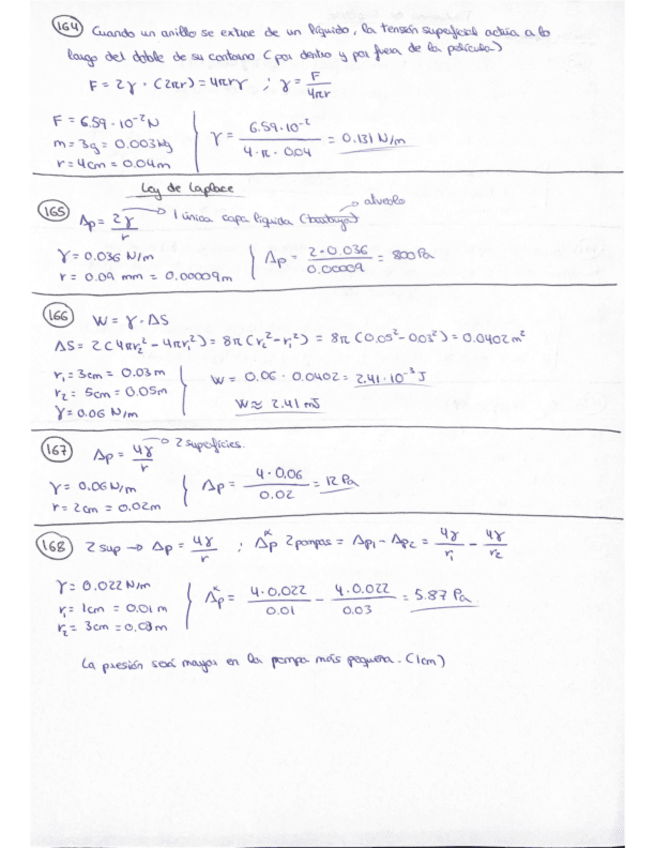 164 Cuando un anillo se extrae de un líquido, la tensión superficial actúa a lo
largo del doble de su contorno (por dentro y por fuera de la película)
F = 2γ · (2πr) = 4πrγ ; γ = F / 4πr
F = 6.59 · 10⁻² N
m = 3g = 0.003 kg
r = 4cm = 0.04m
γ = 6.59 · 10⁻² / 4 · π · 0.04 = 0.131 N/m
Ley de Laplace
165 Δp = 2γ / r → 1 única capa líquida (burbuja) → alveolo
γ = 0.036 N/m
r = 0.09 mm = 0.00009m
Δp = 2 · 0.036 / 0.00009 = 800 Pa
166 W = γ · ΔS
ΔS = 2(4πr₂² - 4πr₁²) = 8π(r₂² - r₁²) = 8π(0.05² - 0.03²) = 0.0402 m²
r₁ = 3cm = 0.03 m
r₂ = 5cm = 0.05m
γ = 0.06 N/m
W = 0.06 · 0.0402 = 2.41 · 10⁻³ J
W ≈ 2.41 mJ
167 Δp = 4γ / r → 2 superficies.
γ = 0.06 N/m
r = 2cm = 0.02m
Δp = 4 · 0.06 / 0.02 = 12 Pa
168 2 sup → Δp = 4γ / r ; Δp* 2 pompas = Δp₁ - Δp₂ = 4γ / r₁ - 4γ / r₂
γ = 0.022 N/m
r₁ = 1cm = 0.01 m
r₂ = 3cm = 0.03 m
Δp* = 4 · 0.022 / 0.01 - 4 · 0.022 / 0.03 = 5.87 Pa
La presión será mayor en la pompa más pequeña. (1cm)